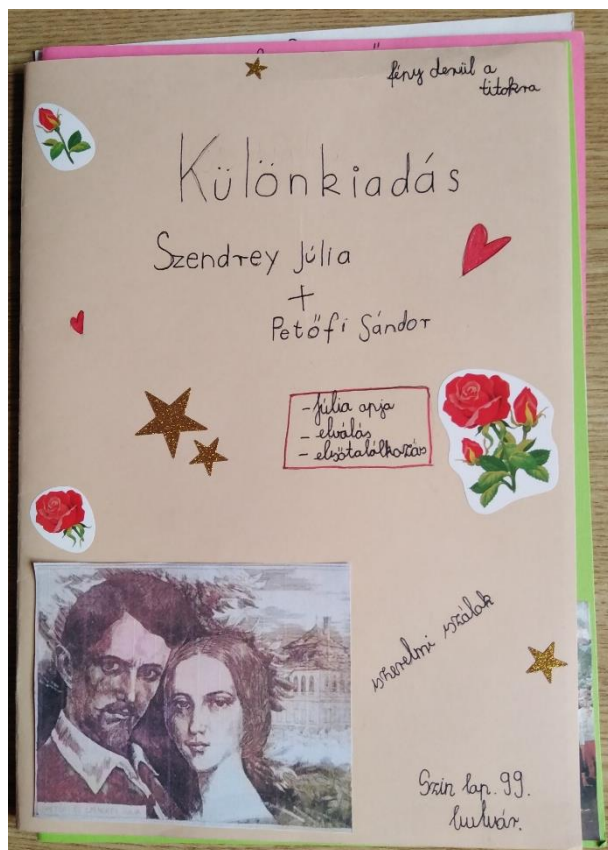 fény derül a
titokra
Különkiadás
Szendrey Júlia
+
Petőfi Sándor
- Júlia apja
- elválás
- elsőtalálkozás
szerelmi szálak
Szín lap. 99.
bulvár.